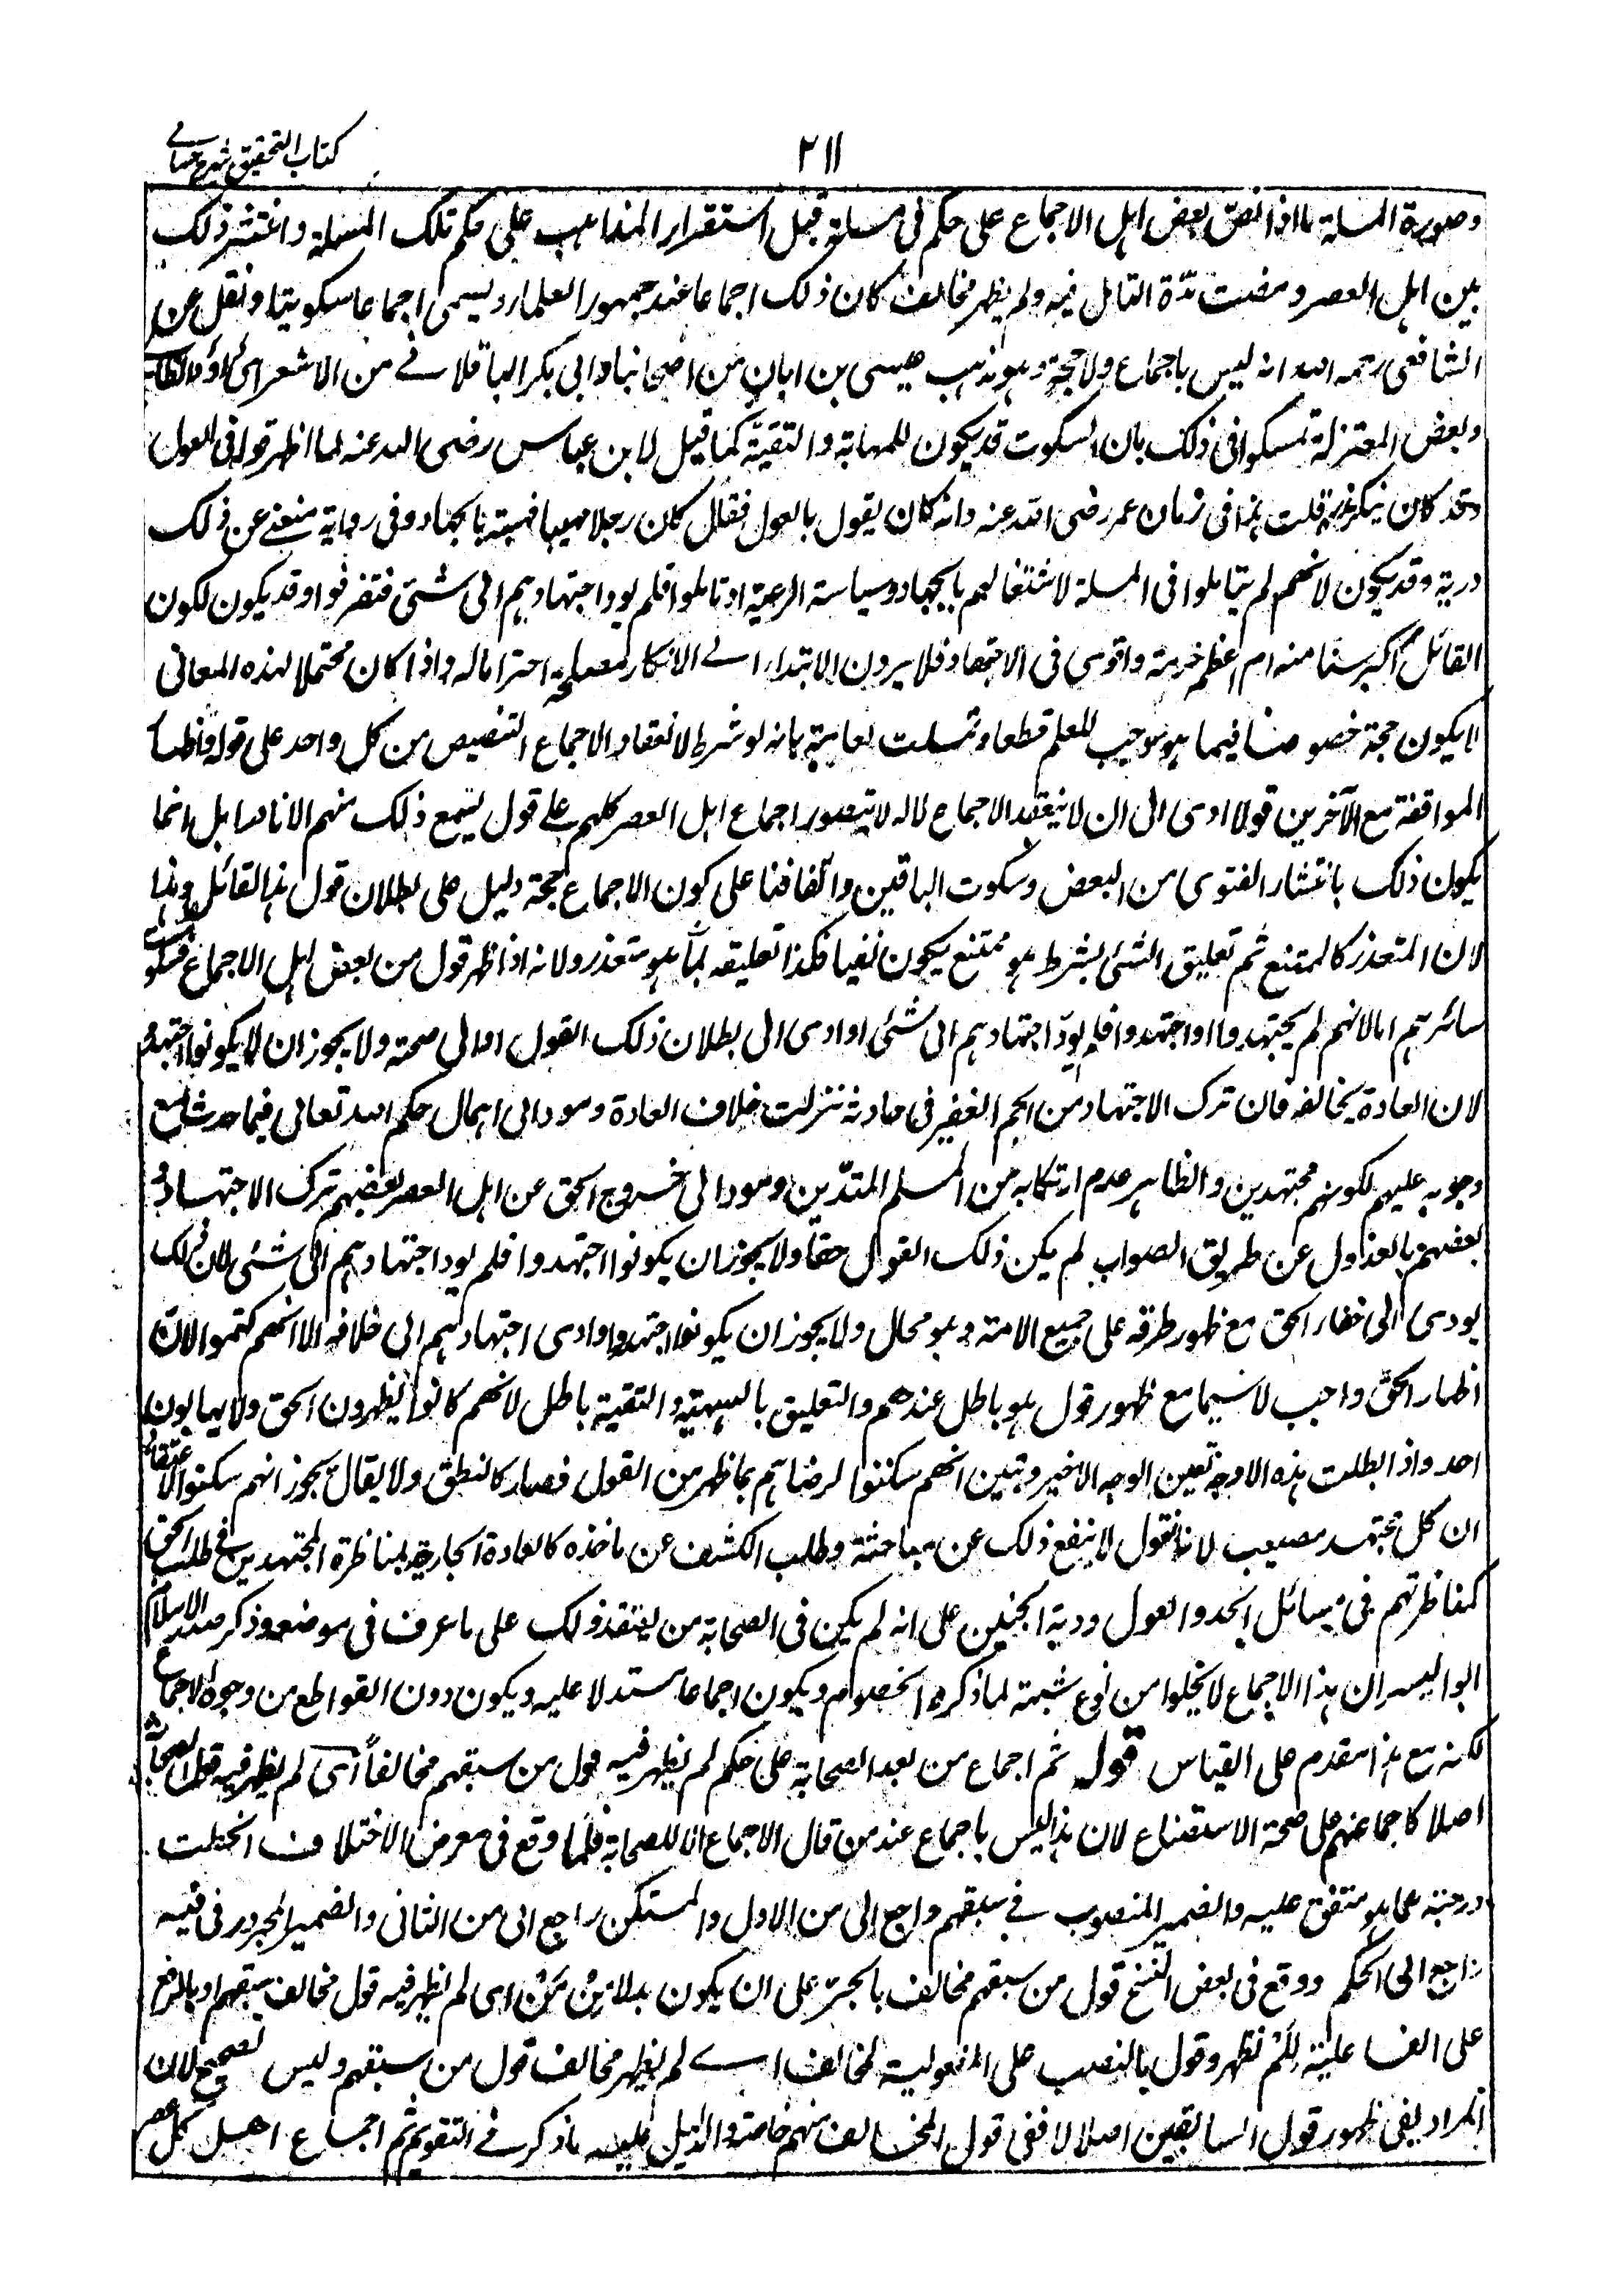 كتاب التحقيق شرح حسامي
٢١١
وصورة المسلة ما اذا نص بعض اهل الاجماع على حكم فى مسلة قبل استقرار المذاهب على حكم تلك المسلة وانتشر ذلك
بين اهل العصر ومضت مدة التامل فيه ولم يظهر مخالف كان ذلك اجماعا عند جمهور العلماء ويسمى اجماعا سكوتيا ونقل عن
الشافعى رحمه الله انه ليس باجماع ولا حجة وهو مذهب عيسى بن ابان من اصحابنا وابى بكر الباقلانے من الاشعرية وداؤد الظاهرى
وبعض المعتزلة تمسكوا فى ذلك بان السكوت قد يكون للمهابة والتقية كما قيل لابن عباس رضى الله عنه لما اظهر قوله فى العول
وقد كان ينكره هلا قلت هذا فى زمان عمر رضى الله عنه وانه كان يقول بالعول فقال كان رجلا مهيبا فهبته وفى رواية منعنے عن ذلك
درته وقد يكون لانهم لم يتاملوا فى المسلة لاشتغالهم بالجهاد وسياسة الرعية او تاملوا فلم يود اجتهادهم الى شئ فتوقفوا وقد يكون لكون
القائل اكبر سنا منه ام اعظم حرمة واقوى فى الاجتهاد فلا يرون الابتداء الے الانكار مصلحة احتراما له واذا كان محتملا لهذه المعانى
لا يكون حجة خصوصا فيما هو موجب للعلم قطعا وتمسكت العامة بانه لو شرط لانعقاد الاجماع التنصيص من كل واحد على قوله واظهار
الموافقة مع الآخرين قولا ادى الى ان لا ينعقد الاجماع لانه لا يتصور اجماع اهل العصر كلهم على قول يسمع ذلك منهم الا نادرا بل انما
يكون ذلك بانتشار الفتوى من البعض وسكوت الباقين واتفاقنا على كون الاجماع حجة دليل على بطلان قول هذا القائل وهذا
لان المتعذر كالممتنع ثم تعليق الشئ بشرط هو ممتنع يكون نفيا فكذا تعليقه بما هو متعذر ولانه اذا ظهر قول من بعض اهل الاجماع فسكوت
سائرهم اما لانهم لم يجتهدوا او اجتهدوا فلم يود اجتهادهم الى شئ او ادى الى بطلان ذلك القول او الى صحته ولا يجوز ان لا يكونوا اجتهدوا
لان العادة يخالفه فان ترك الاجتهاد من الجم الغفير فى حادثة نزلت خلاف العادة ومود الى اهمال حكم الله تعالى فيما حدث مع
وجوبه عليهم لكونهم مجتهدين والظاهر عدم ارتكابه من المسلم المتدين ومود الى خروج الحق عن اهل العصر بعضهم بترك الاجتهاد و
بعضهم بالعدول عن طريق الصواب لم يكن ذلك القول حقا ولا يجوز ان يكونوا اجتهدوا فلم يود اجتهادهم الى شئ لان ذلك
يودى الى خفاء الحق مع ظهور طرقه على جميع الامة وهو محال ولا يجوز ان يكونوا اجتهدوا وادى اجتهادهم الى خلافه الا انهم كتموا لان
اظهار الحق واجب لا سيما مع ظهور قول هو باطل عندهم والتعليق بالهيبة والتقية باطل لانهم كانوا يظهرون الحق ولا يهابون
احد واذا بطلت هذه الاوجه تعين الوجه الاخير وتبين انهم سكتوا لرضاهم بما ظهر من القول فصار كالنطق ولا يقال يجوز انهم سكتوا لاعتقادهم
ان كل مجتهد مصيب لانا نقول لا ينفع ذلك عن مباحثة وطلب الكشف عن ماخذه كالعادة الجارية بمناظرة المجتهدين فى طلب الحق
كمناظرتهم فى مسائل الجد والعول ودية الجنين على انه لم يكن فى الصحابة من يعتقد ذلك على ما عرف فى موضعه وذكر صدر الاسلام
ابو اليسر ان هذا الاجماع لا يخلوا من نوع شبهة لما ذكره الخصوم ويكون اجماعا مستدلا عليه ويكون دون القواطع من وجوه الاجماع
لكنه مع هذا مقدم على القياس قوله ثم اجماع من بعد الصحابة على حكم لم يظهر فيه قول من سبقهم مخالفاً اى لم يظهر فيه قول الصحابة
اصلا كاجماعهم على صحة الاستصناع لان هذا ليس باجماع عند من قال الاجماع الا للصحابة فلما وقع فى معرض الاختلاف انحطت
درجته عما هو متفق عليه والضمير المنصوب فى سبقهم راجع الى من الاول والمستكن راجع الى من الثانى والضمير المجرور فى فيه
راجع الى الحكم ووقع فى بعض النسخ قول من سبقهم مخالف بالجر على ان يكون بدلا مِنْ مَنْ اى لم يظهر فيه قول مخالف سبقهم او بالرفع
على الفاعلية لِلَمْ يظهر وقول بالنصب على المفعولية لمخالف اے لم يظهر مخالف قول من سبقهم وليس بصحيح لان
المراد نفى ظهور قول السابقين اصلا لا نفى قول المخالف منهم خاصة والدليل عليه ما ذكر فى التقويم ثم اجماع اهل كل عصر